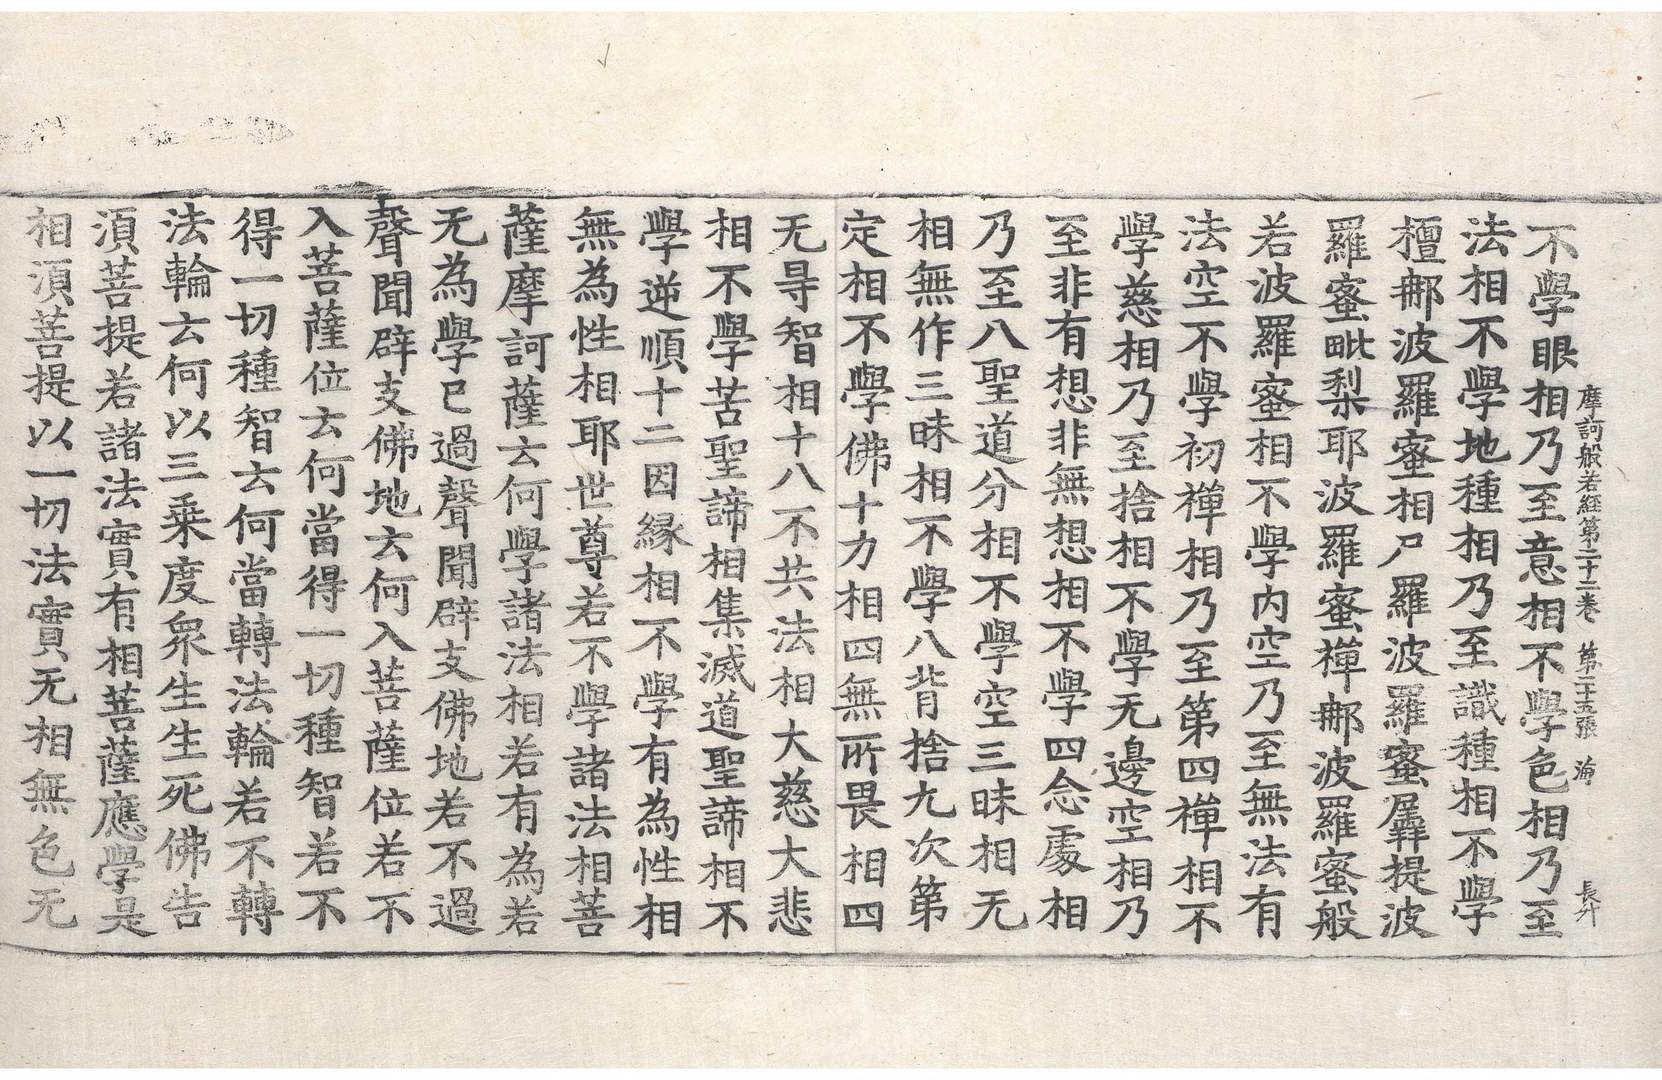 摩訶般若經第二十二卷 第二十五張 海 長升
不學眼相乃至意相不學色相乃至
法相不學地種相乃至識種相不學
檀那波羅蜜相尸羅波羅蜜羼提波
羅蜜毗梨耶波羅蜜禪那波羅蜜般
若波羅蜜相不學内空乃至無法有
法空不學初禪相乃至第四禪相不
學慈相乃至捨相不學无邊空相乃
至非有想非無想相不學四念處相
乃至八聖道分相不學空三昧相无
相無作三昧相不學八背捨九次第
定相不學佛十力相四無所畏相四
无㝵智相十八不共法相大慈大悲
相不學苦聖諦相集滅道聖諦相不
學逆順十二因緣相不學有為性相
無為性相耶世尊若不學諸法相菩
薩摩訶薩云何學諸法相若有為若
无為學已過聲聞辟支佛地若不過
聲聞辟支佛地云何入菩薩位若不
入菩薩位云何當得一切種智若不
得一切種智云何當轉法輪若不轉
法輪云何以三乘度眾生生死佛告
湏菩提若諸法實有相菩薩應學是
相湏菩提以一切法實无相無色无